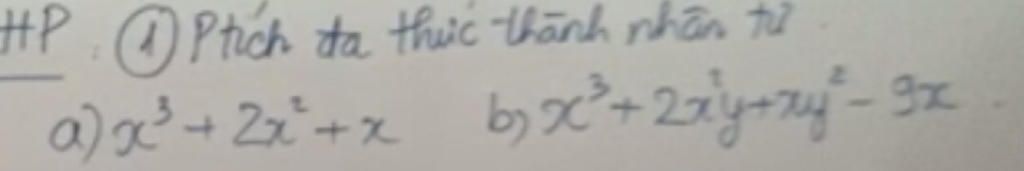 HP. ① Ptích đa thức thành nhân tử.
a) x³ + 2x² + x b) x³ + 2x²y + xy² - 9x.